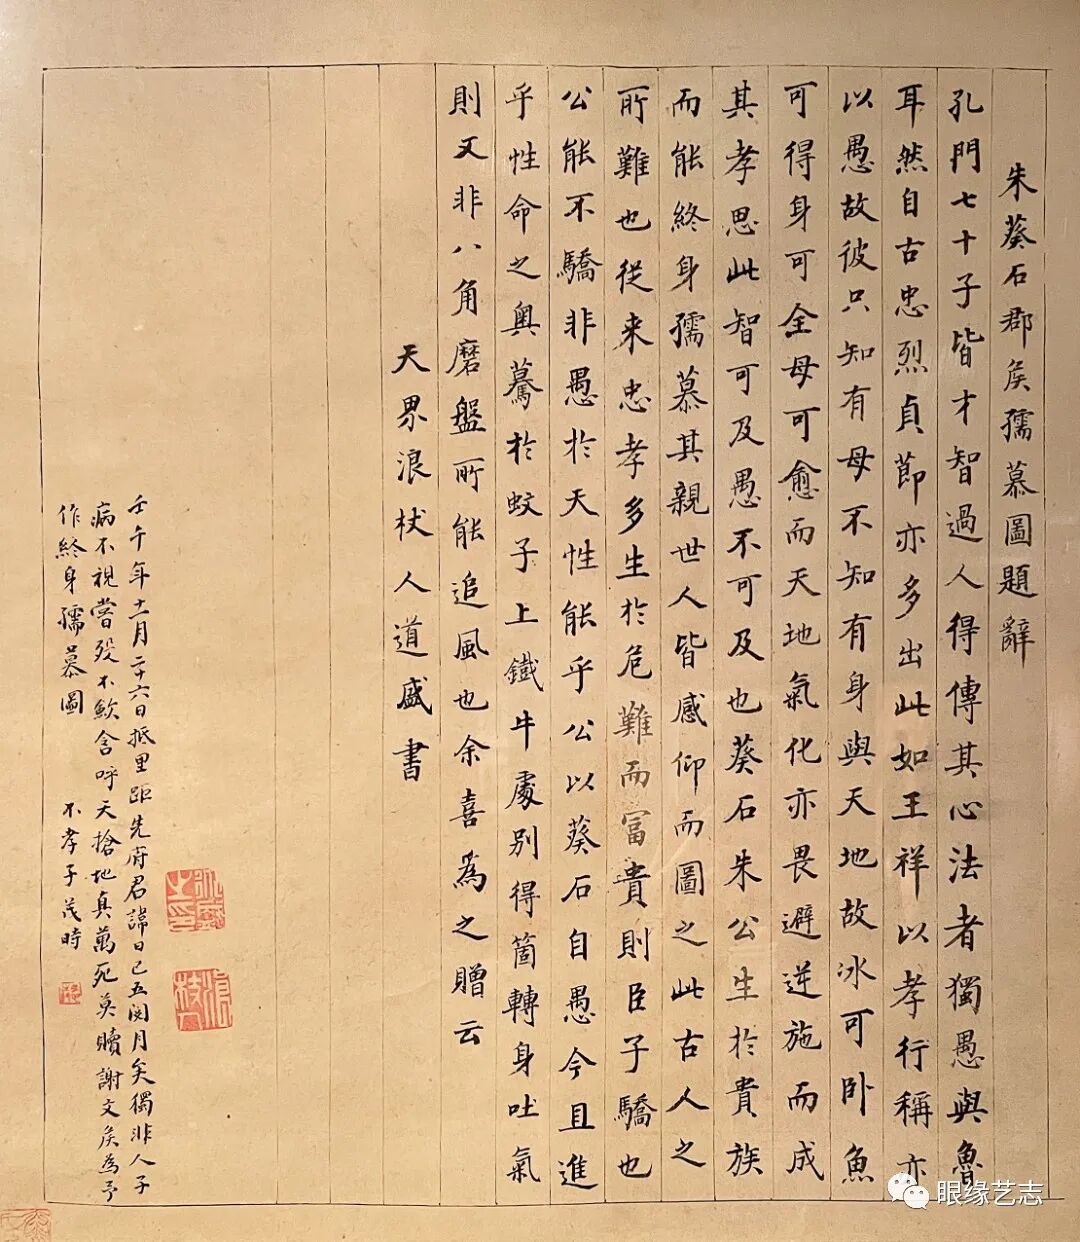 朱葵石郡矦孺慕圖題辭
孔門七十子皆才智過人得傳其心法者獨愚與魯
耳然自古忠烈貞節亦多出此如王祥以孝行稱亦
以愚故彼只知有母不知有身與天地故冰可卧魚
可得身可全母可愈而天地氣化亦畏避逆施而成
其孝思此智可及愚不可及也葵石朱公生於貴族
而能終身孺慕其親世人皆感仰而圖之此古人之
所難也從来忠孝多生於危難而富貴則臣子驕也
公能不驕非愚於天性能乎公以葵石自愚今且進
乎性命之奥驀於蚊子上鐵牛處別得箇轉身吐氣
則又非八角磨盤所能追風也余喜為之贈云
天界浪杖人道盛書
壬午年十一月二十六日抵里距先府君諱日已五閱月矣獨非人子
病不視嘗殁不飲含呼天搶地真萬死莫贖謝文矦為予
作終身孺慕圖 不孝子茂時
眼缘艺志